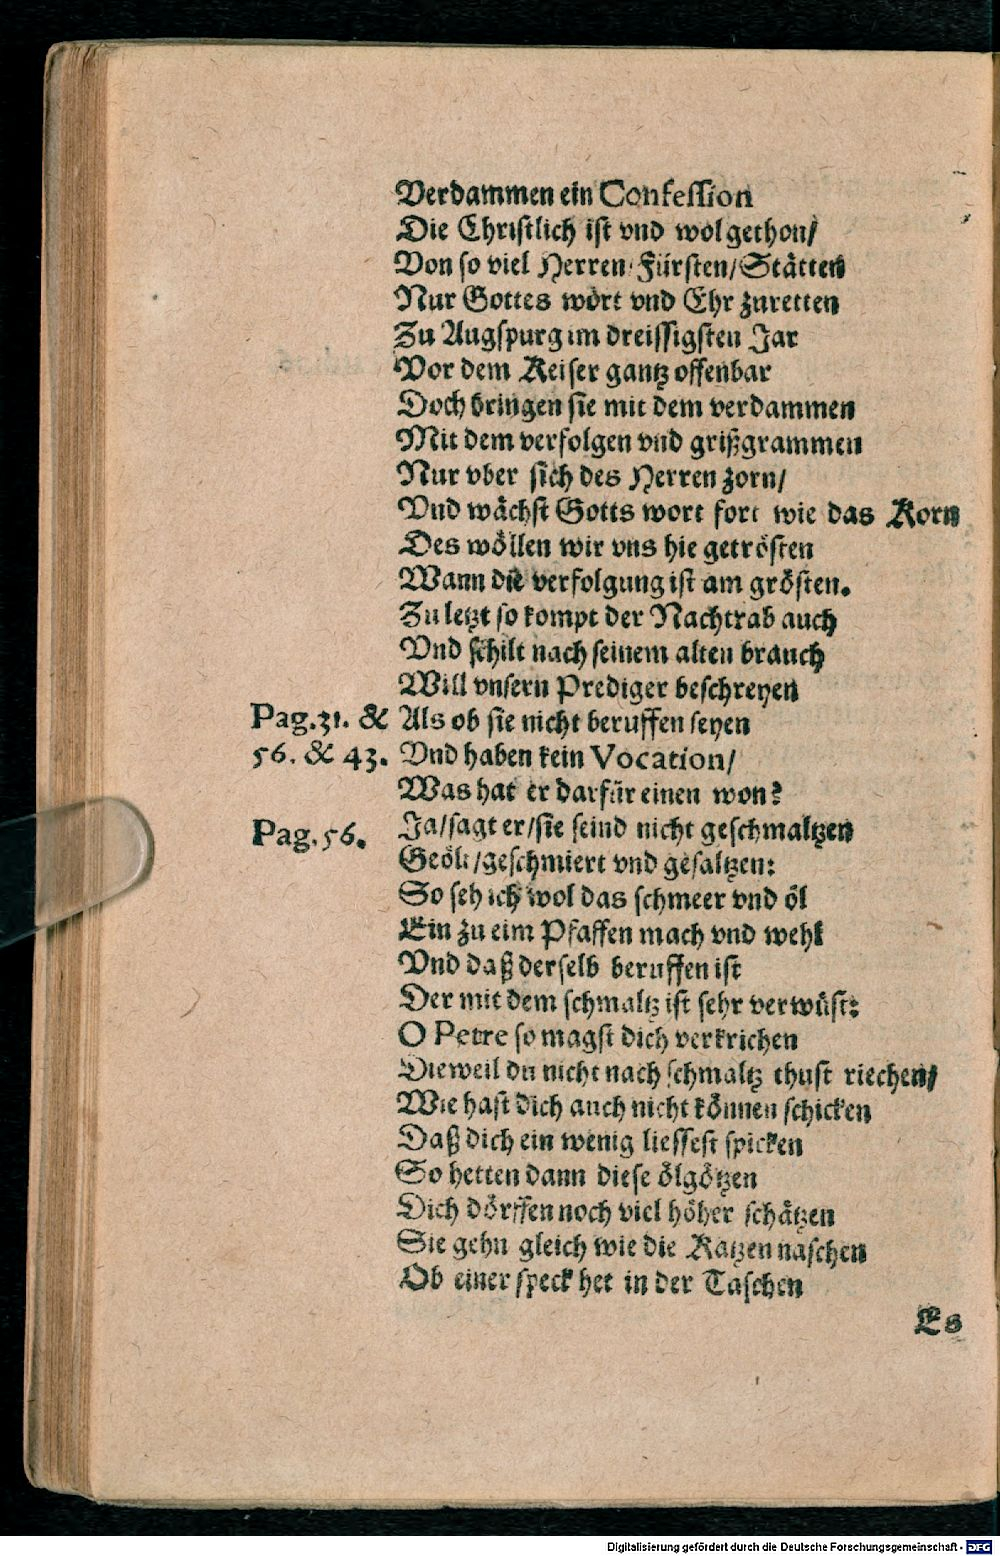 Verdammen ein Confession
Die Christlich ist vnd wol gethon/
Von so viel Herren/Fürsten/Stätten
Nur Gottes wort vnd Ehr zuretten
Zu Augspurg im dreissigsten Jar
Vor dem Keiser gantz offenbar
Doch bringen sie mit dem verdammen
Mit dem verfolgen vnd grißgrammen
Nur vber sich des Herren zorn/
Vnd wächst Gotts wort fort wie das Korn
Des wöllen wir vns hie getrösten
Wann die verfolgung ist am grösten.
Zu letzt so kompt der Nachtrab auch
Vnd schilt nach seinem alten brauch
Will vnsern Prediger beschreyen
Pag.31. & Als ob sie nicht beruffen seyen
56. & 43. Vnd haben kein Vocation/
Was hat er darfür einen won?
Pag.56. Ja/sagt er/sie seind nicht geschmaltzen
Geölt/geschmiert vnd gesaltzen:
So seh ich wol das schmeer vnd öl
Ein zu eim Pfaffen mach vnd wehl
Vnd daß derselb beruffen ist
Der mit dem schmaltz ist sehr verwüst:
O Petre so magst dich verkrichen
Dieweil du nicht nach schmaltz thust riechen/
Wie hast dich auch nicht können schicken
Daß dich ein wenig liessest spicken
So hetten dann diese ölgötzen
Dich dörffen noch viel höher schätzen
Sie gehn gleich wie die Katzen naschen
Ob einer speck het in der Taschen
Es
Digitalisierung gefördert durch die Deutsche Forschungsgemeinschaft - DFG